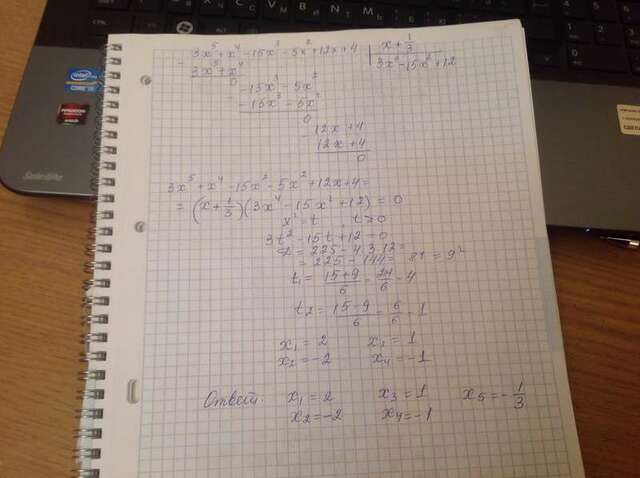 - 3x⁵+x⁴-15x³-5x²+12x+4 | x+1/3
3x⁵+x⁴ 3x⁴-15x²+12
0 -15x³-5x²
-15x³-5x²
0
12x+4
12x+4
0
3x⁵+x⁴-15x²-5x²+12x+4=
=(x+1/3)(3x⁴-15x²+12)=0
x²=t t>0
3t²-15t+12=0
D=225-4·3·12=
=225-144=81=9²
t₁=(15+9)/6=24/6=4
t₂=(15-9)/6=6/6=1
x₁=2 x₃=1
x₂=-2 x₄=-1
Ответ: x₁=2 x₃=1 x₅=-1/3
x₂=-2 x₄=-1
intel
CORE i5
AMD